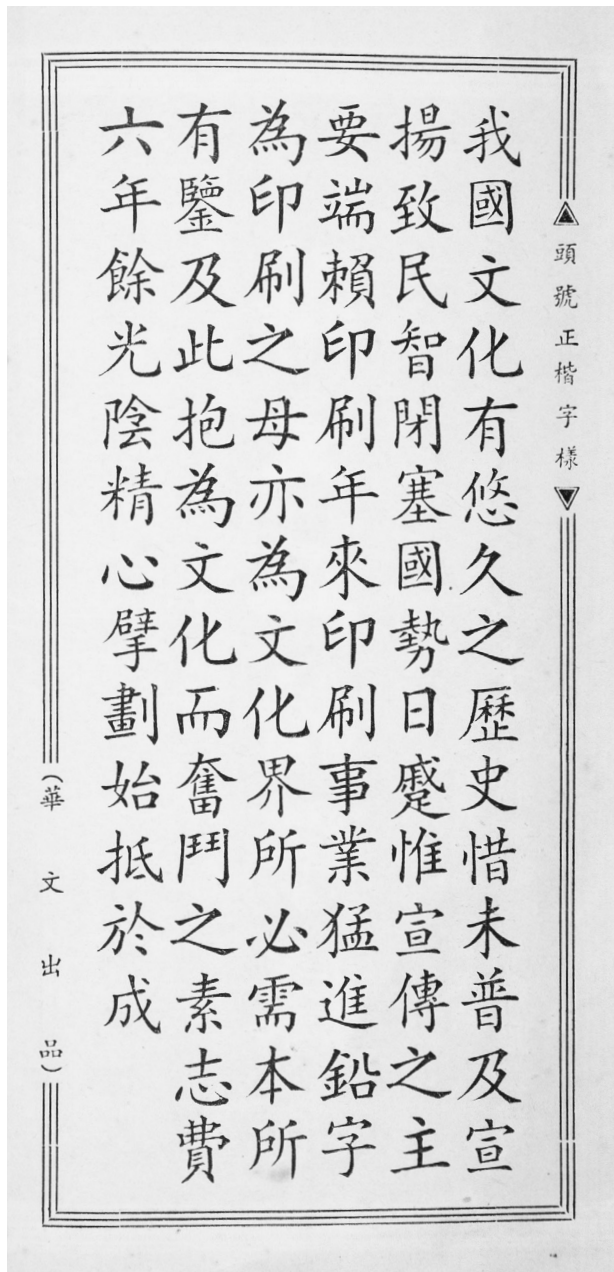 ▲頭號正楷字樣▼
我國文化有悠久之歷史惜未普及宣
揚致民智閉塞國勢日蹙惟宣傳之主
要端賴印刷年來印刷事業猛進鉛字
為印刷之母亦為文化界所必需本所
有鑒及此抱為文化而奮鬥之素志費
六年餘光陰精心擘劃始抵於成
(華文出品)